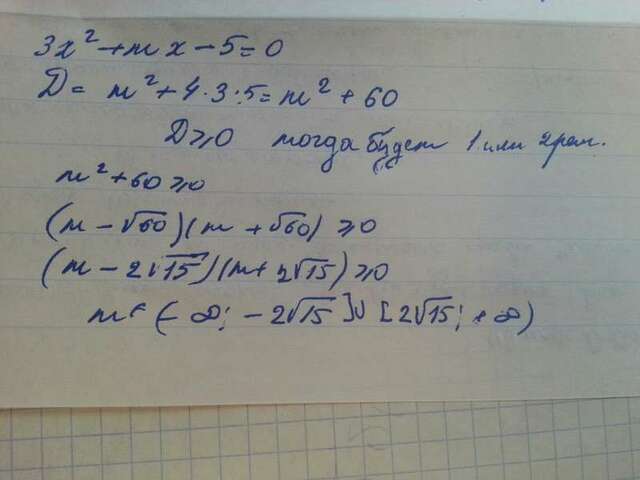 3x² + mx - 5 = 0
D = m² + 4·3·5 = m² + 60
D ≥ 0 тогда будет 1 или 2 реш.
m² + 60 ≥ 0
(m - √60)(m + √60) ≥ 0
(m - 2√15)(m + 2√15) ≥ 0
m ∈ (-∞; -2√15] ∪ [2√15; +∞)